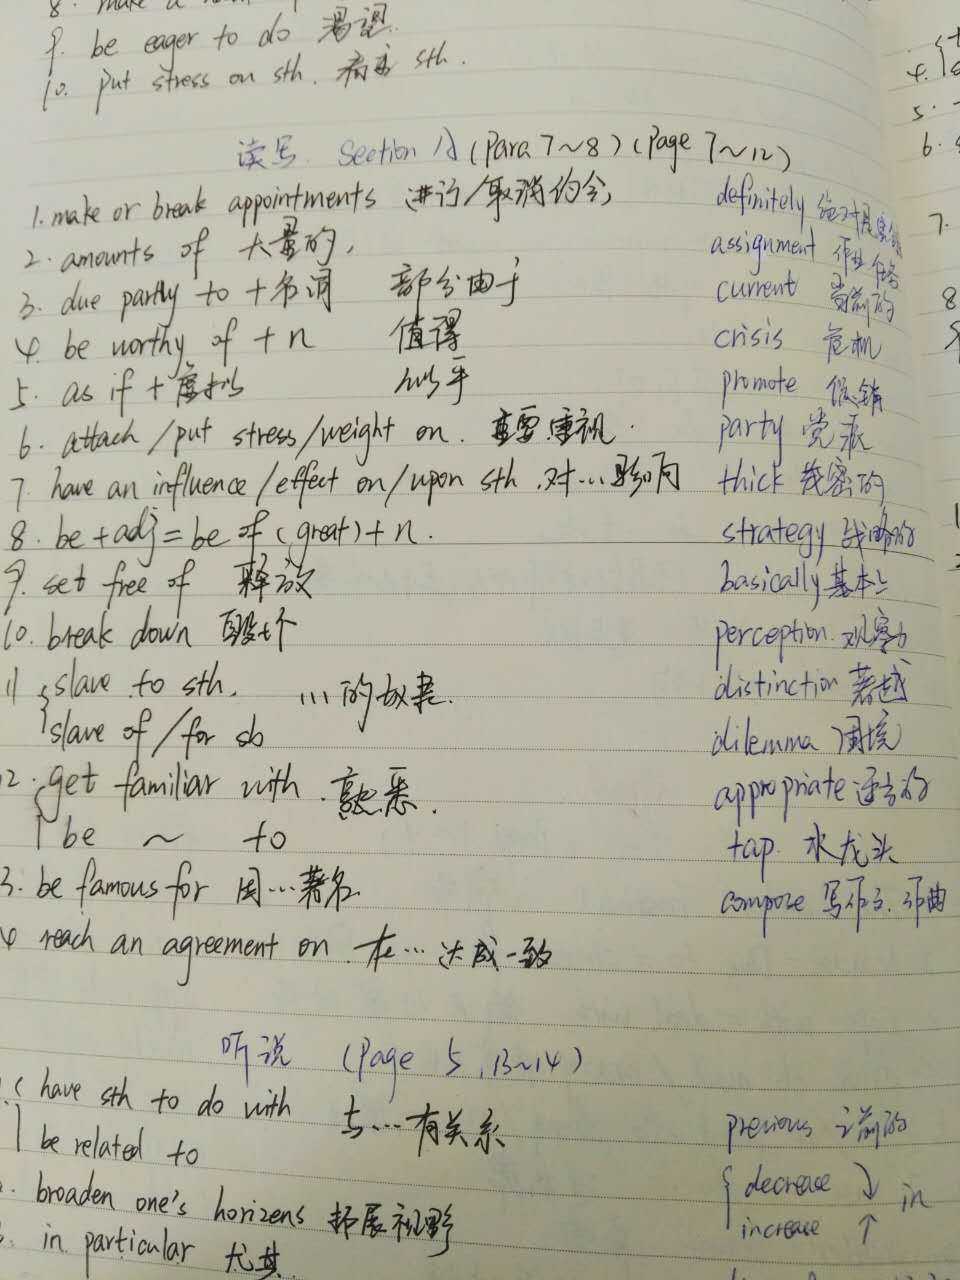 8. make a
9. be eager to do 渴望
10. put stress on sth. 着重 sth.
读写 Section A (Para 7~8) (Page 7~12)
1. make or break appointments 进行/取消约会 definitely 绝对是
2. amounts of 大量的, assignment 作业 任务
3. due partly to + 名词 部分由于 current 当前的
4. be worthy of + n 值得 crisis 危机
5. as if + 虚拟 似乎 promote 促销
6. attach /put stress/weight on. 重要重视. party 党派
7. have an influence /effect on/upon sth. 对…影响 thick 浓密的
8. be + adj = be of (great) + n. strategy 战略的
9. set free of 释放 basically 基本上
10. break down 毁坏 perception. 观察力
11 slave to sth. …的奴隶. distinction 著越
slave of /for sb dilemma 困境
12. get familiar with. 熟悉. appropriate 适当的
be ~ to tap. 水龙头
3. be famous for 因…著名 compose 写作. 作曲
4 reach an agreement on. 在…达成一致
听说 (Page 5, 13~14)
have sth to do with 与…有关系 previous 之前的
be related to
broaden one's horizens 拓展视野 decrease ↓ in
in particular 尤其 increase ↑
4.
5.
6.
7.
8